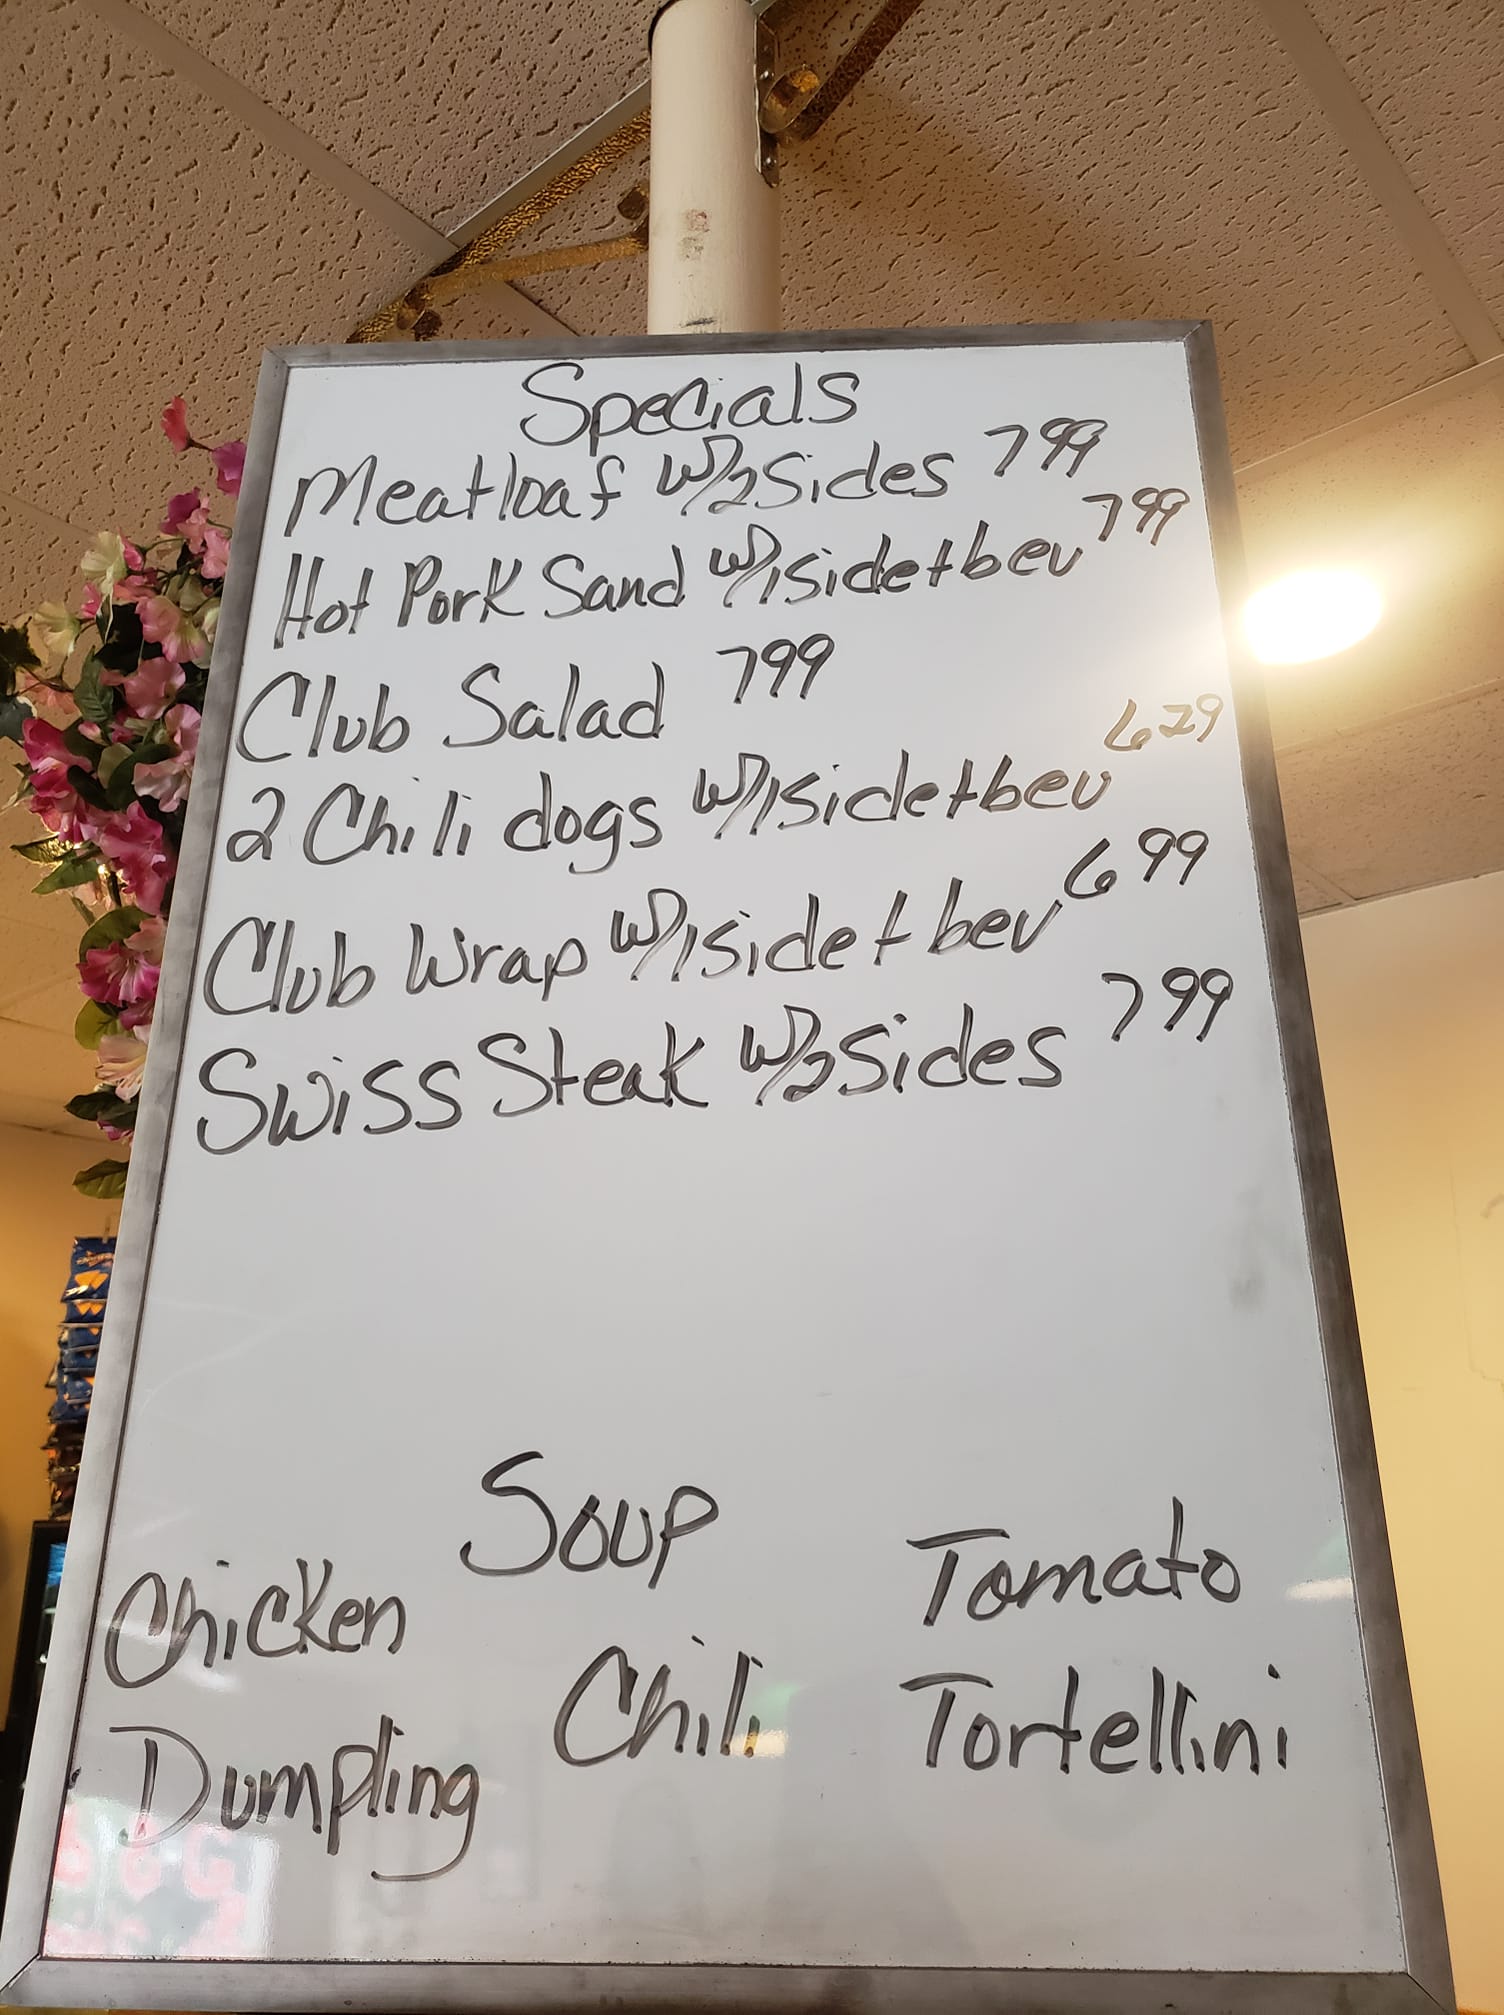 Specials
Meatloaf w/2 Sides 799
Hot Pork Sand w/1side+bev 799
Club Salad 799
2 Chili dogs w/1side+bev 629
Club Wrap w/1side+bev 699
Swiss Steak w/2 Sides 799
Soup
Chicken Dumpling
Chili
Tomato Tortellini